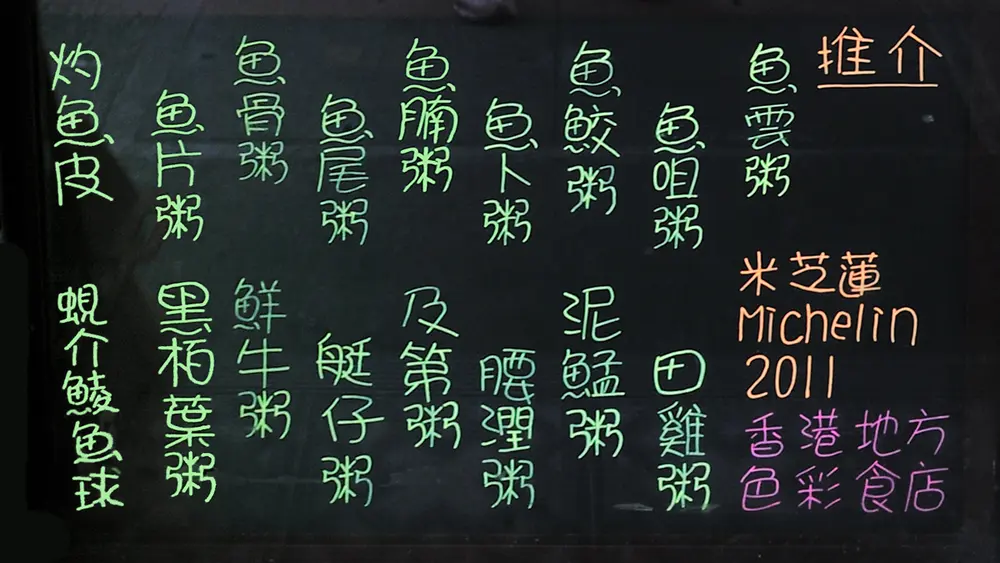 推介
魚雲粥
魚咀粥
魚鮫粥
魚卜粥
魚腩粥
魚尾粥
魚骨粥
魚片粥
灼魚皮
米芝蓮
Michelin
2011
香港地方
色彩食店
田雞粥
泥鯭粥
腰潤粥
及第粥
艇仔粥
鮮牛粥
黑柏葉粥
蜆介鯪魚球